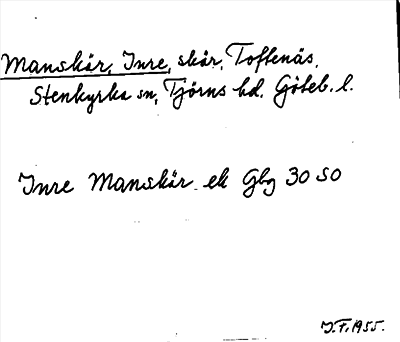 Manskär, Inre, skär, Toftenäs.
Stenkyrka sn, Tjörns hd. Göteb. l.
Inre Manskär ek Gbg 30 SO
J.F. 1955.